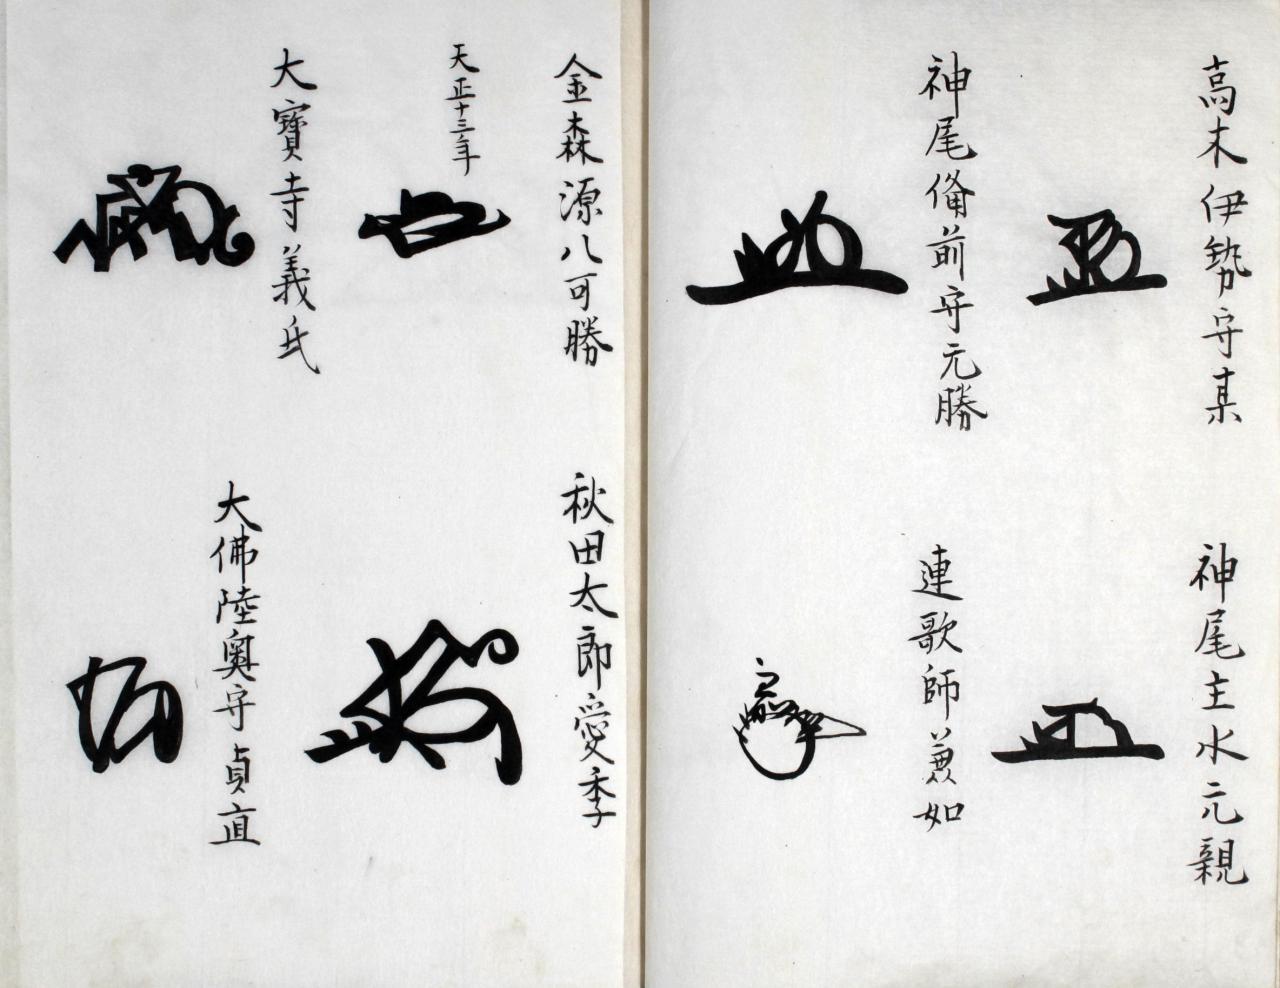 高木伊勢守某
神尾主水元親
神尾俻前守元勝
連歌師兼如
金森源八可勝
天正十三年
秋田太郎愛季
大寶寺義氏
大佛陸奥守貞直